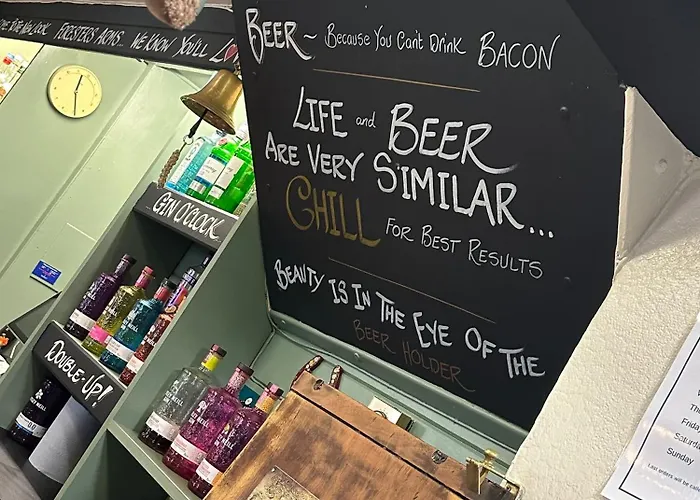 New Look Foresters Arms... We Know You'll Lo
Beer ~ Because You Can't Drink Bacon
Life and Beer
Are Very Similar...
Chill For Best Results
Beauty Is In The Eye Of The
Beer Holder
Gin O'Clock
Double-Up!
Friday
Saturda
Sunday
Last orders will be call